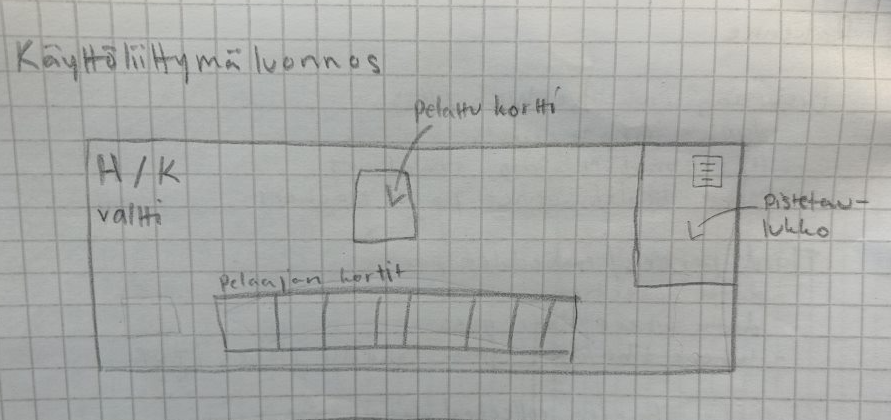 Käyttöliittymäluonnos
pelattu kortti
H/K
valtti
pistetau-
lukko
pelaajan kortit